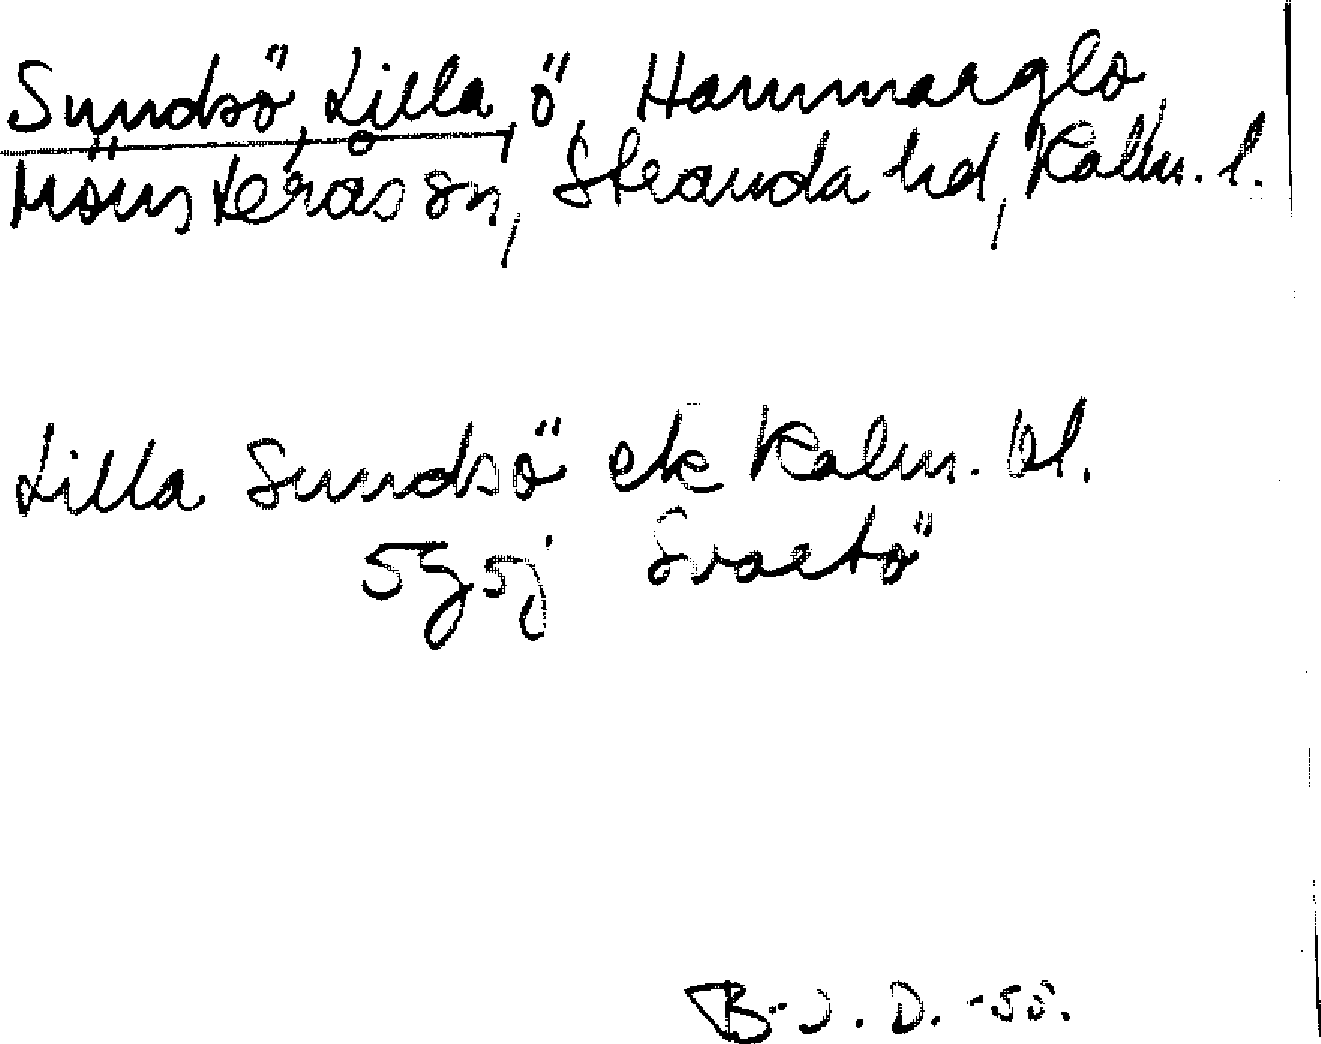 Sundsö, Lilla, ö, Hammarglo,
Mönsterås sn, Stranda hd, Kalm. l.
Lilla Sundsö ek Kalm. bl.
5g5j Svartö
B-J. D. -55.